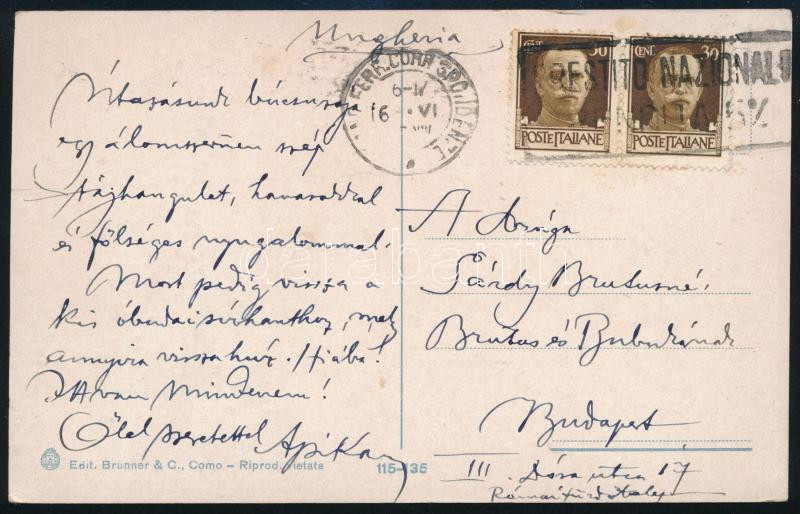 Ungheria
FERR. CORRISPONDENZE
16 VI
CENT. 30
POSTE ITALIANE
CENT. 30
POSTE ITALIANE
PRESTITO NAZIONALE
RENDITA 5%
Utazásunk búcsúzója
egy álomszerűen szép
tájhangulat, havasokkal
és fölséges nyugalommal.
Most pedig vissza a
kis óbudai sírhanthoz, mely
annyira visszahúz. Hiába!
Ott van Mindenem!
Ölel szeretettel
A
Sárdy Brutusné,
Brutus és Bubukának
Budapest
III. Dósa utca 17
Római fürdőtelep
darabanth.com
Edit. Brunner & C., Como – Riprod. vietata
115-135